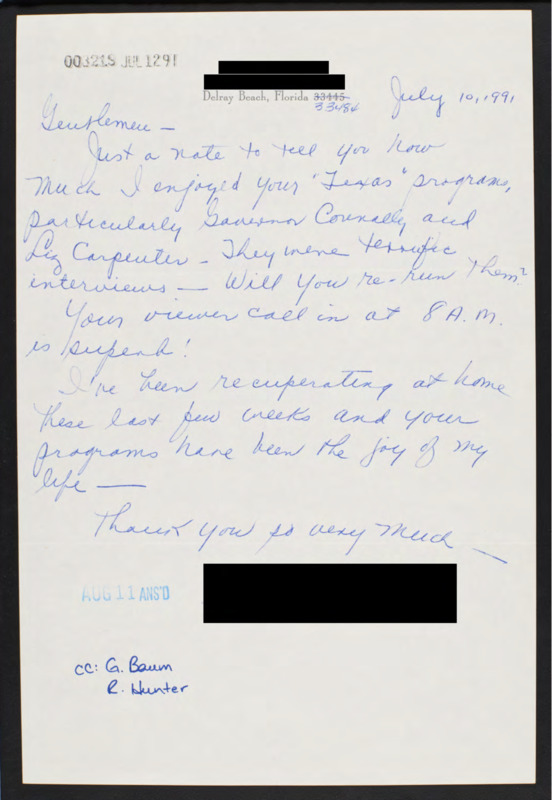 003215 JUL1291
Delray Beach, Florida 33445
33484
July 10, 1991
Gentlemen —
Just a note to tell you how
much I enjoyed your "Texas" programs,
particularly Governor Connally and
Liz Carpenter — They were terrific
interviews — Will you re-run them?
Your viewer call in at 8 A.M.
is superb!
I've been recuperating at home
these last few weeks and your
programs have been the joy of my
life —
Thank you so very much —
AUG 11 ANS'D
cc: G. Baum
R. Hunter